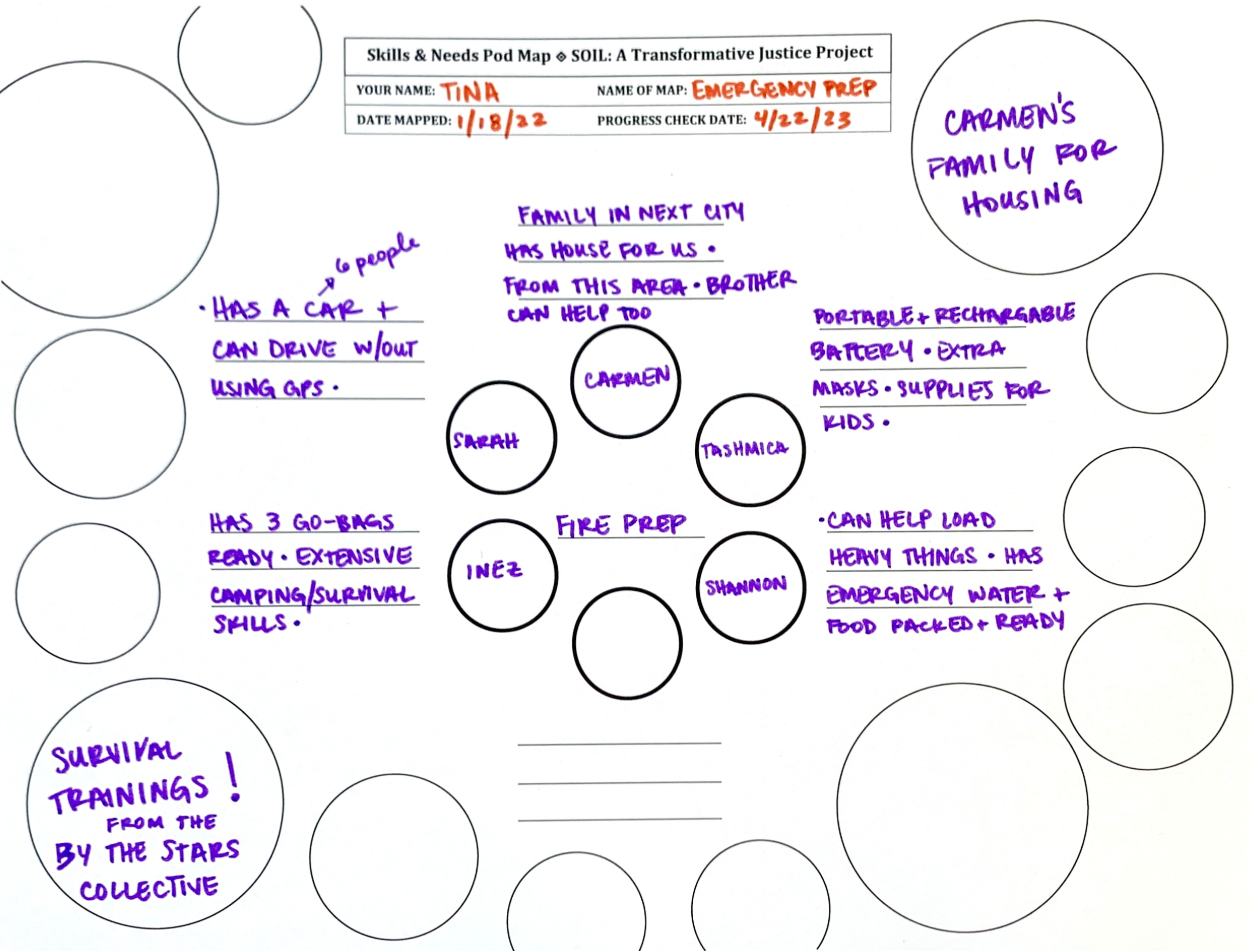 Skills & Needs Pod Map ◈ SOIL: A Transformative Justice Project
YOUR NAME: TINA
NAME OF MAP: EMERGENCY PREP
DATE MAPPED: 1/18/22
PROGRESS CHECK DATE: 4/22/23
CARMEN'S
FAMILY FOR
HOUSING
FAMILY IN NEXT CITY
HAS HOUSE FOR US •
FROM THIS AREA • BROTHER
CAN HELP TOO
CARMEN
6 people
• HAS A CAR +
CAN DRIVE W/OUT
USING GPS •
SARAH
PORTABLE + RECHARGABLE
BATTERY • EXTRA
MASKS • SUPPLIES FOR
KIDS •
TASHMICA
HAS 3 GO-BAGS
READY • EXTENSIVE
CAMPING/SURVIVAL
SKILLS •
INEZ
FIRE PREP
SHANNON
• CAN HELP LOAD
HEAVY THINGS • HAS
EMERGENCY WATER +
FOOD PACKED + READY
SURVIVAL
TRAININGS !
FROM THE
BY THE STARS
COLLECTIVE